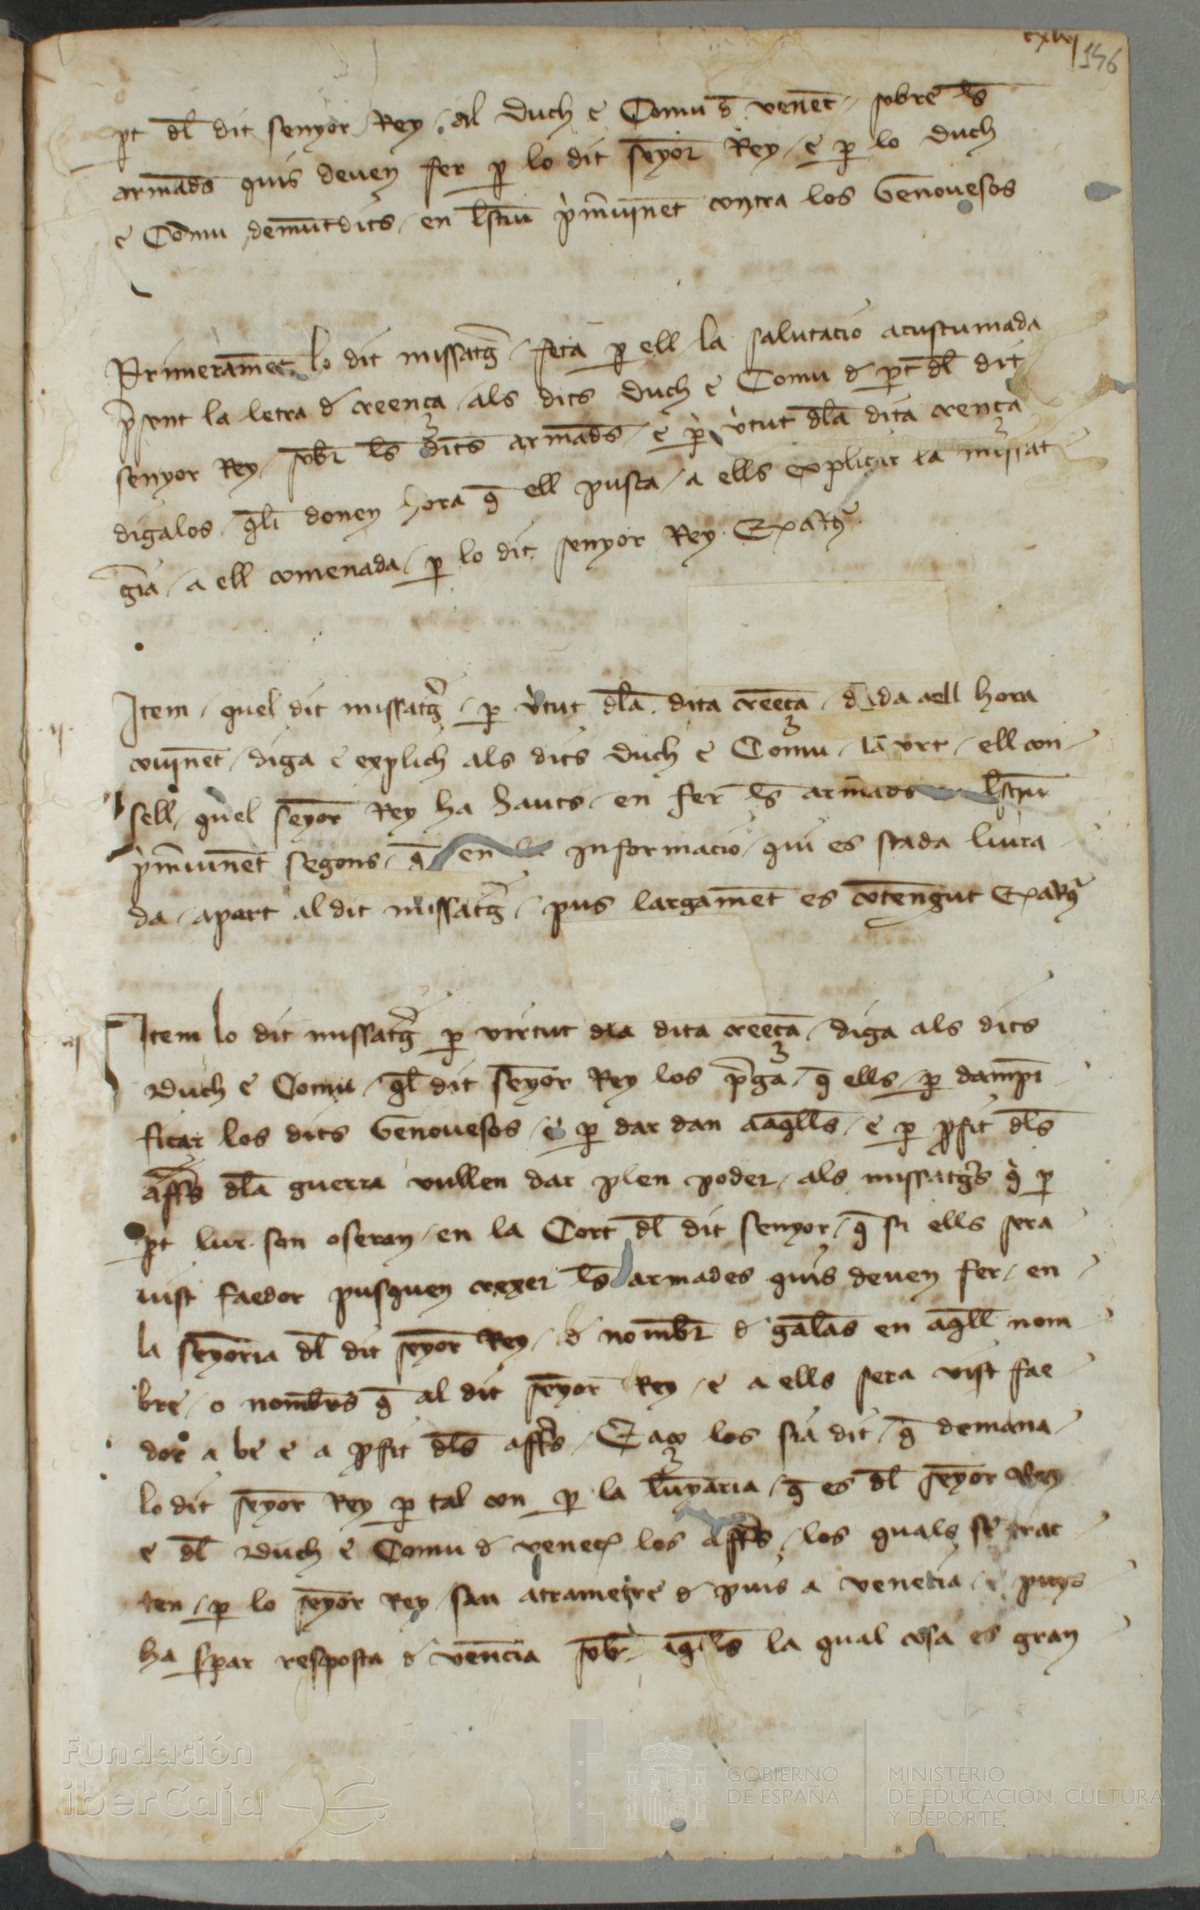 cxlvj 146
pt dl dit senyor Rey al Duch e Comu d venec sobre ls
armads quis deuen fer p lo dit senyor Rey e p lo Duch
e Comu demutdits en lstiu pmuinet contra los Genouesos
Primerament lo dit missatg feta p ell la salutacio acustumada
psent la letra d creença als dits Duch e Comu d pt dl dit
senyor Rey sobr ls dits armads e p vtut dla dita crença
digalos qli donen hora q ell pusca a ells explicar la missat
gia a ell comenada p lo dit senyor Rey
ij
Item quel dit missatg p vtut dla dita creeça dada aell hora
couinet diga e explich als dits Duch e Comu ell con
sell quel seyor Rey ha hauts en fer ls armads lstiu
pmiunet segons q en informacio qui es stada liura
da apart al dit missatg pus largamet es contengut
iij
Item lo dit missatg p virtut dla dita creeça diga als dits
Duch e Comu ql dit seyor Rey los pga q ells p dampni
ficar los dits Genouesos e p dar dan aaqlls e p pfit dls
affrs dla guerra vullen dar plen poder als missatgs q p
pt lur son oseran en la Cort dl dit senyor q si ells sera
vist faedor pusquen crexer ls armades quis deuen fer en
la senyoria dl dit seyor Rey d nombr d galeas en aqll nom
bre o nombrs q al dit seyor Rey e a ells sera vist fae
dor a be e a pfit dls affrs E aço los sia dit q demana
lo dit seyor Rey p tal con p la lunyaria q es dl seyor Rey
e dl Duch e Comu d venec los affrs los quals se trac
ten p lo seyor Rey san atrametre d puis a venecia e puys
ha sperar resposta d venecia sobr aqlls la qual cosa es gran
Fundación
iberCaja
GOBIERNO
DE ESPAÑA
MINISTERIO
DE EDUCACIÓN, CULTURA
Y DEPORTE